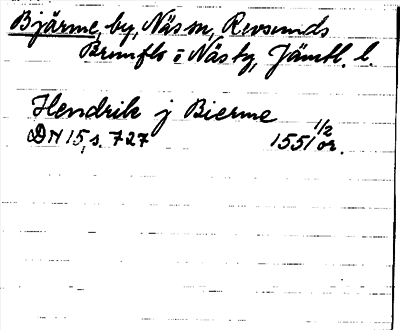 Bjärme, by, Näs sn, Revsunds
Brunflo o Näs tg, Jämtl. l.
Hendrik j Bierme
DN 15, s. 727 1551 1/2 or.